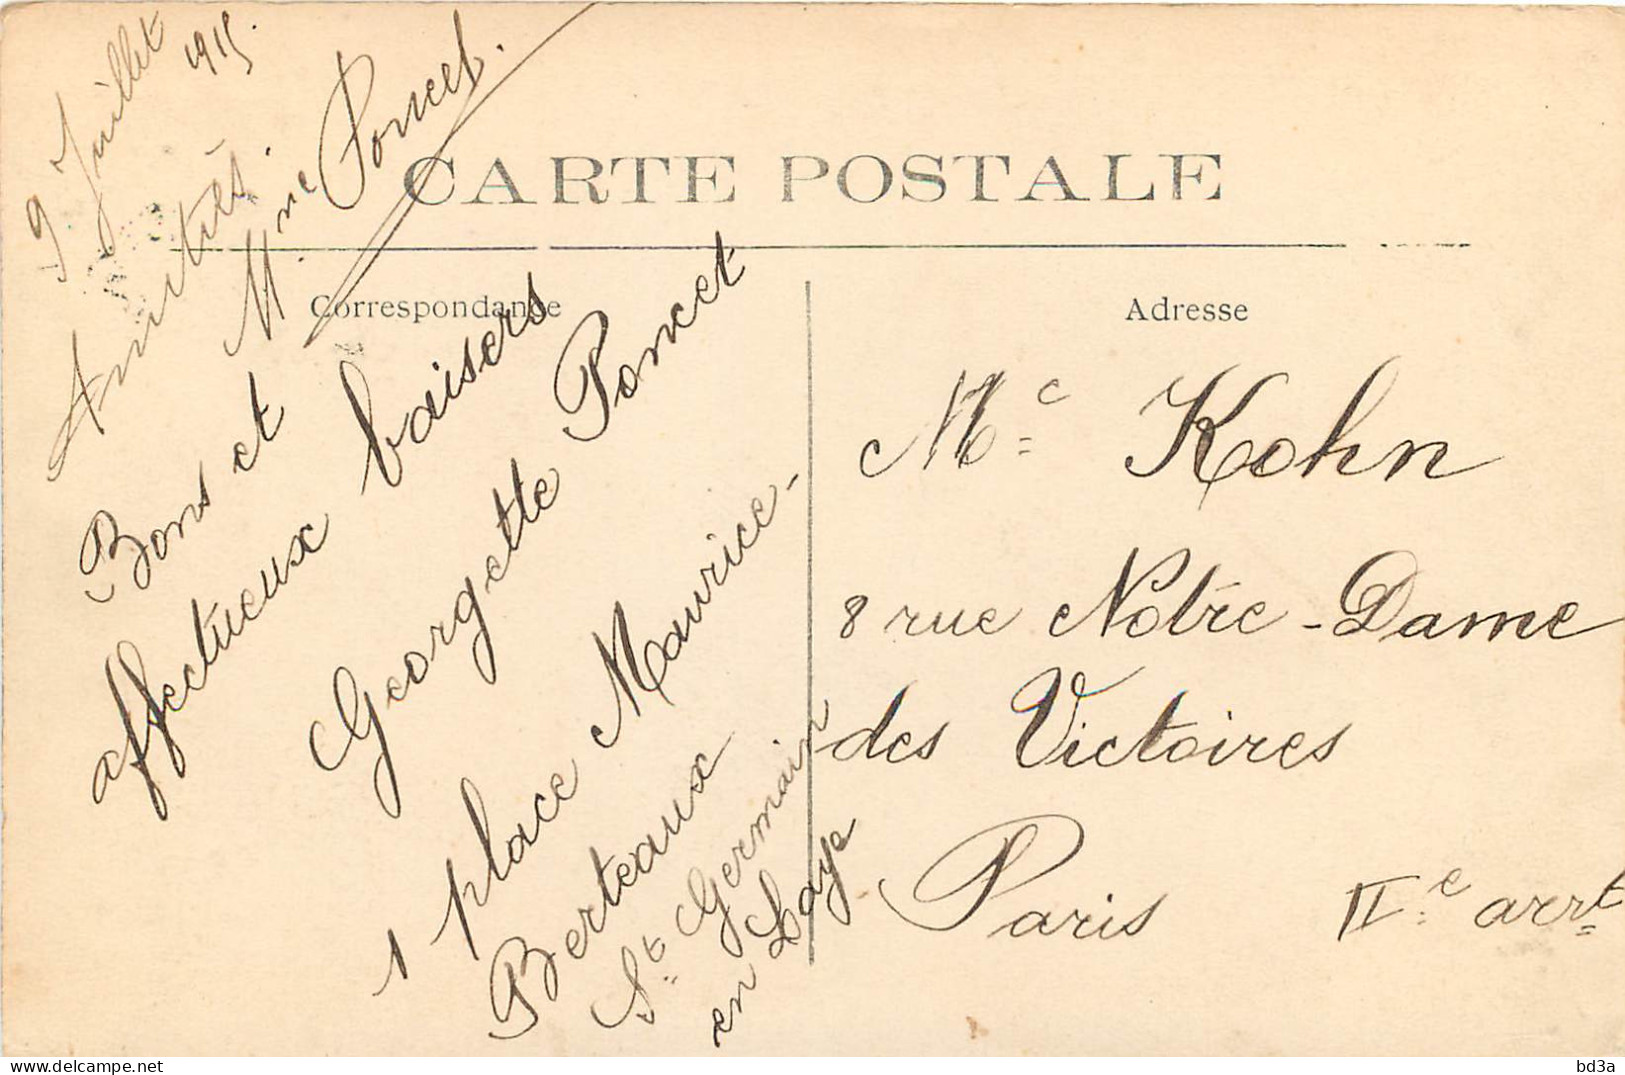 9 Juillet
1915.
Amitiés.
Mme Poncet.
CARTE POSTALE
Correspondance
Bons et
affectueux baisers
Georgette Poncet
1 place Maurice-
Berteaux
St Germain
en Laye
Adresse
Mc Kohn
8 rue Notre-Dame
des Victoires
Paris IIe arrt
bd3a